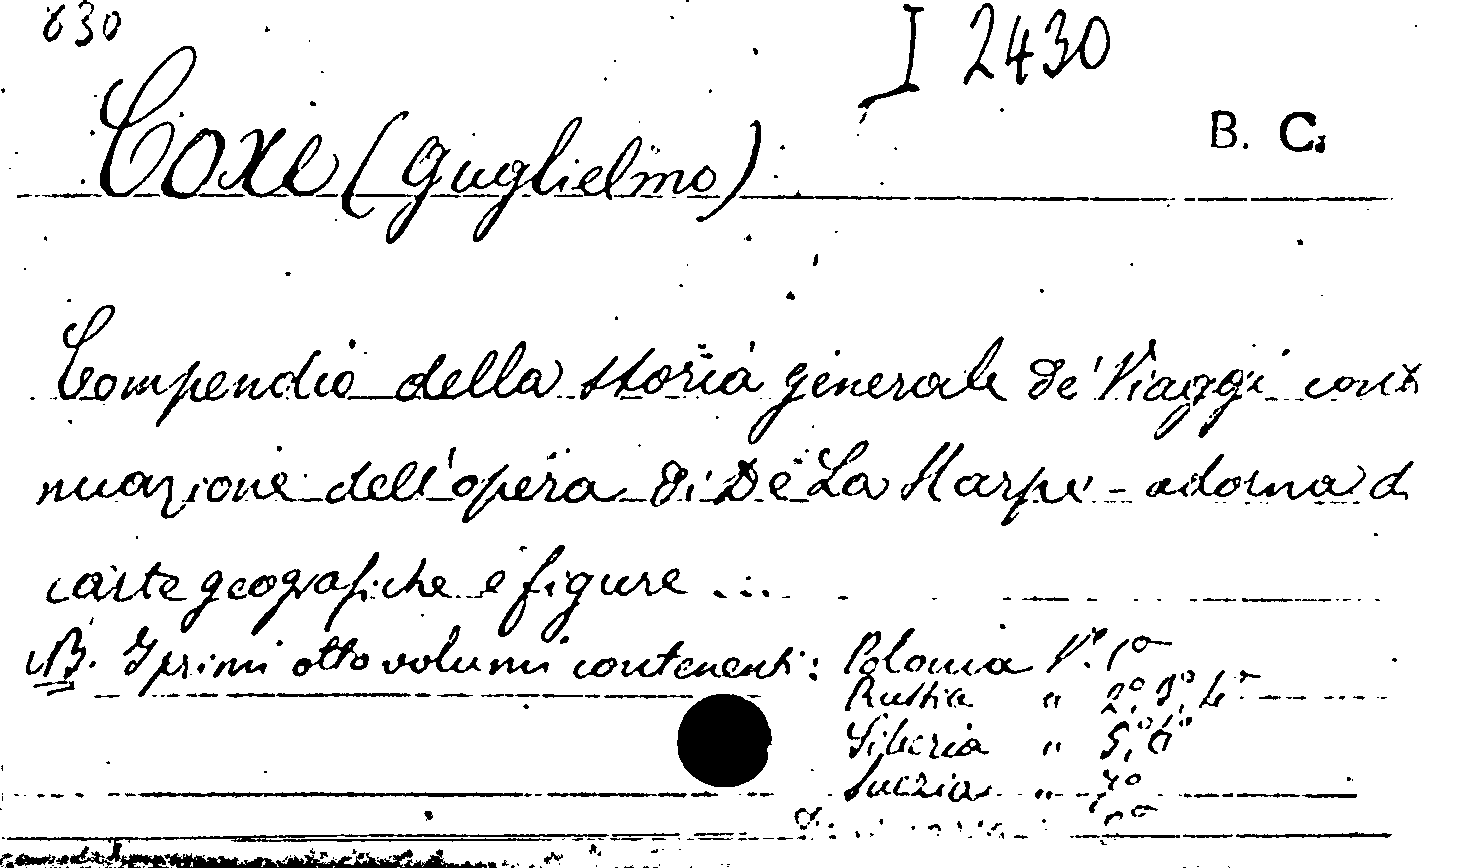 830
I 2430
B. C.
Coxe (Guglielmo)
Compendio della storia generale de' Viaggi conti
nuazione dell'opera di De La Harpe - adorna d
carte geografiche e figure ...
NB. I primi otto volumi contenenti: Polonia V. 1º
Russia " 2º, 3º, 4º
Siberia " 5º, 6º
Svezia " 7º